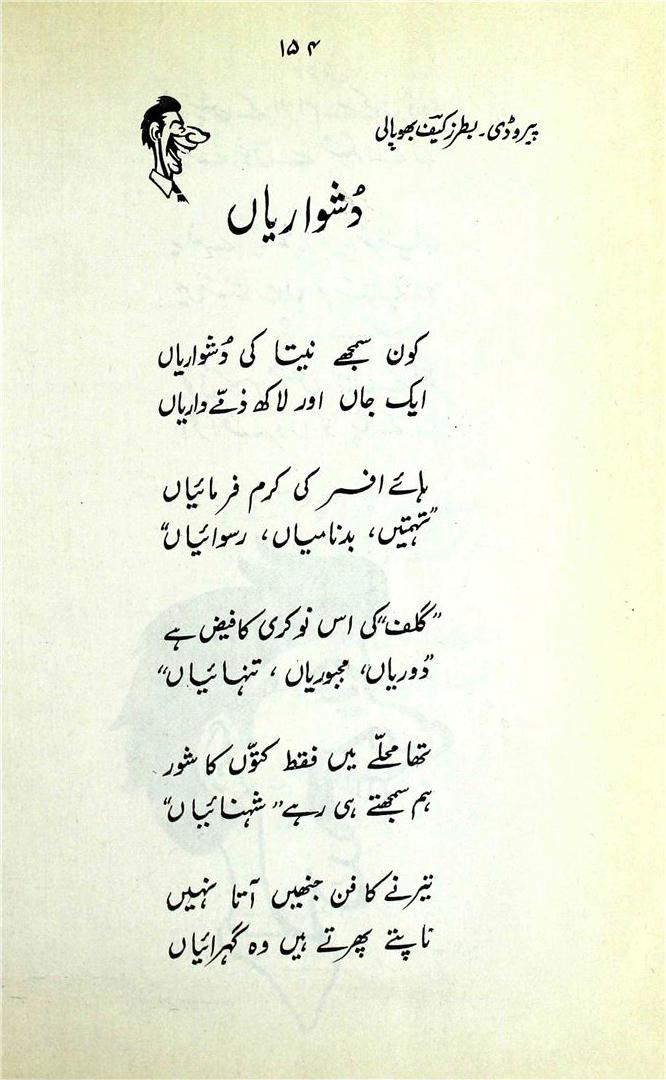 ۱۵۴
پیروڈی۔ بطرز کیفؔ بھوپالی
دُشواریاں
کون سمجھے نیتا کی دُشواریاں
ایک جاں اور لاکھ ذمّے داریاں
ہائے افسر کی کرم فرمائیاں
”تہمتیں، بدنامیاں، رسوائیاں“
”گلف“ کی اس نوکری کا فیض ہے
”دوریاں، مجبوریاں، تنہائیاں“
تھا محلّے میں فقط کتوّں کا شور
ہم سمجھتے ہی رہے ”شہنائیاں“
تیرنے کا فن جنھیں آتا نہیں
ناپتے پھرتے ہیں وہ گہرائیاں